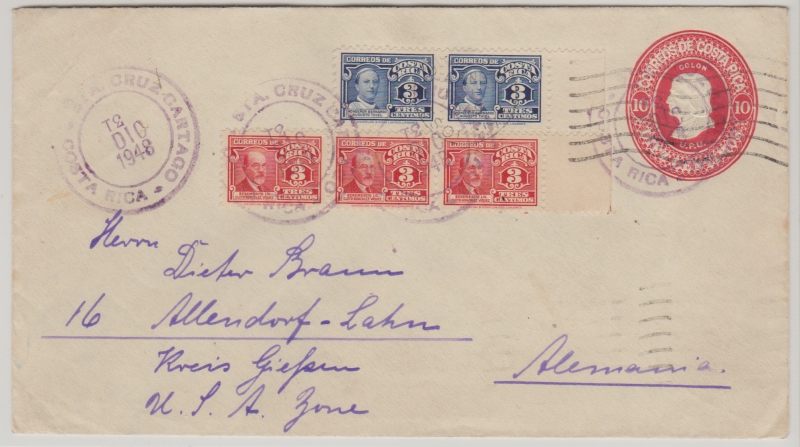 STA. CRUZ-CARTAGO
13
DIC
1948
COSTA RICA
CORREOS DE
COSTA RICA
3
TRES
CENTIMOS
CORREOS DE
COSTA RICA
3
TRES
CENTIMOS
CORREOS DE
COSTA RICA
3
TRES
CENTIMOS
CORREOS DE
COSTA RICA
3
TRES
CENTIMOS
CORREOS DE
COSTA RICA
3
TRES
CENTIMOS
STA. CRUZ
RICA
CORREOS DE COSTA RICA
COLON
10 10
RICA
Herrn
Dieter Braun
16 Allendorf-Lahn
Kreis Gießen
U. S. A. Zone
Alemania.